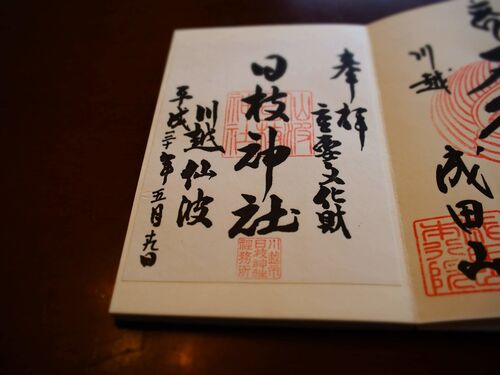 奉拝
重要文化財
日枝神社
川越仙波
平成二十年五月
川越市
日枝神社
社務所
川越
成田山